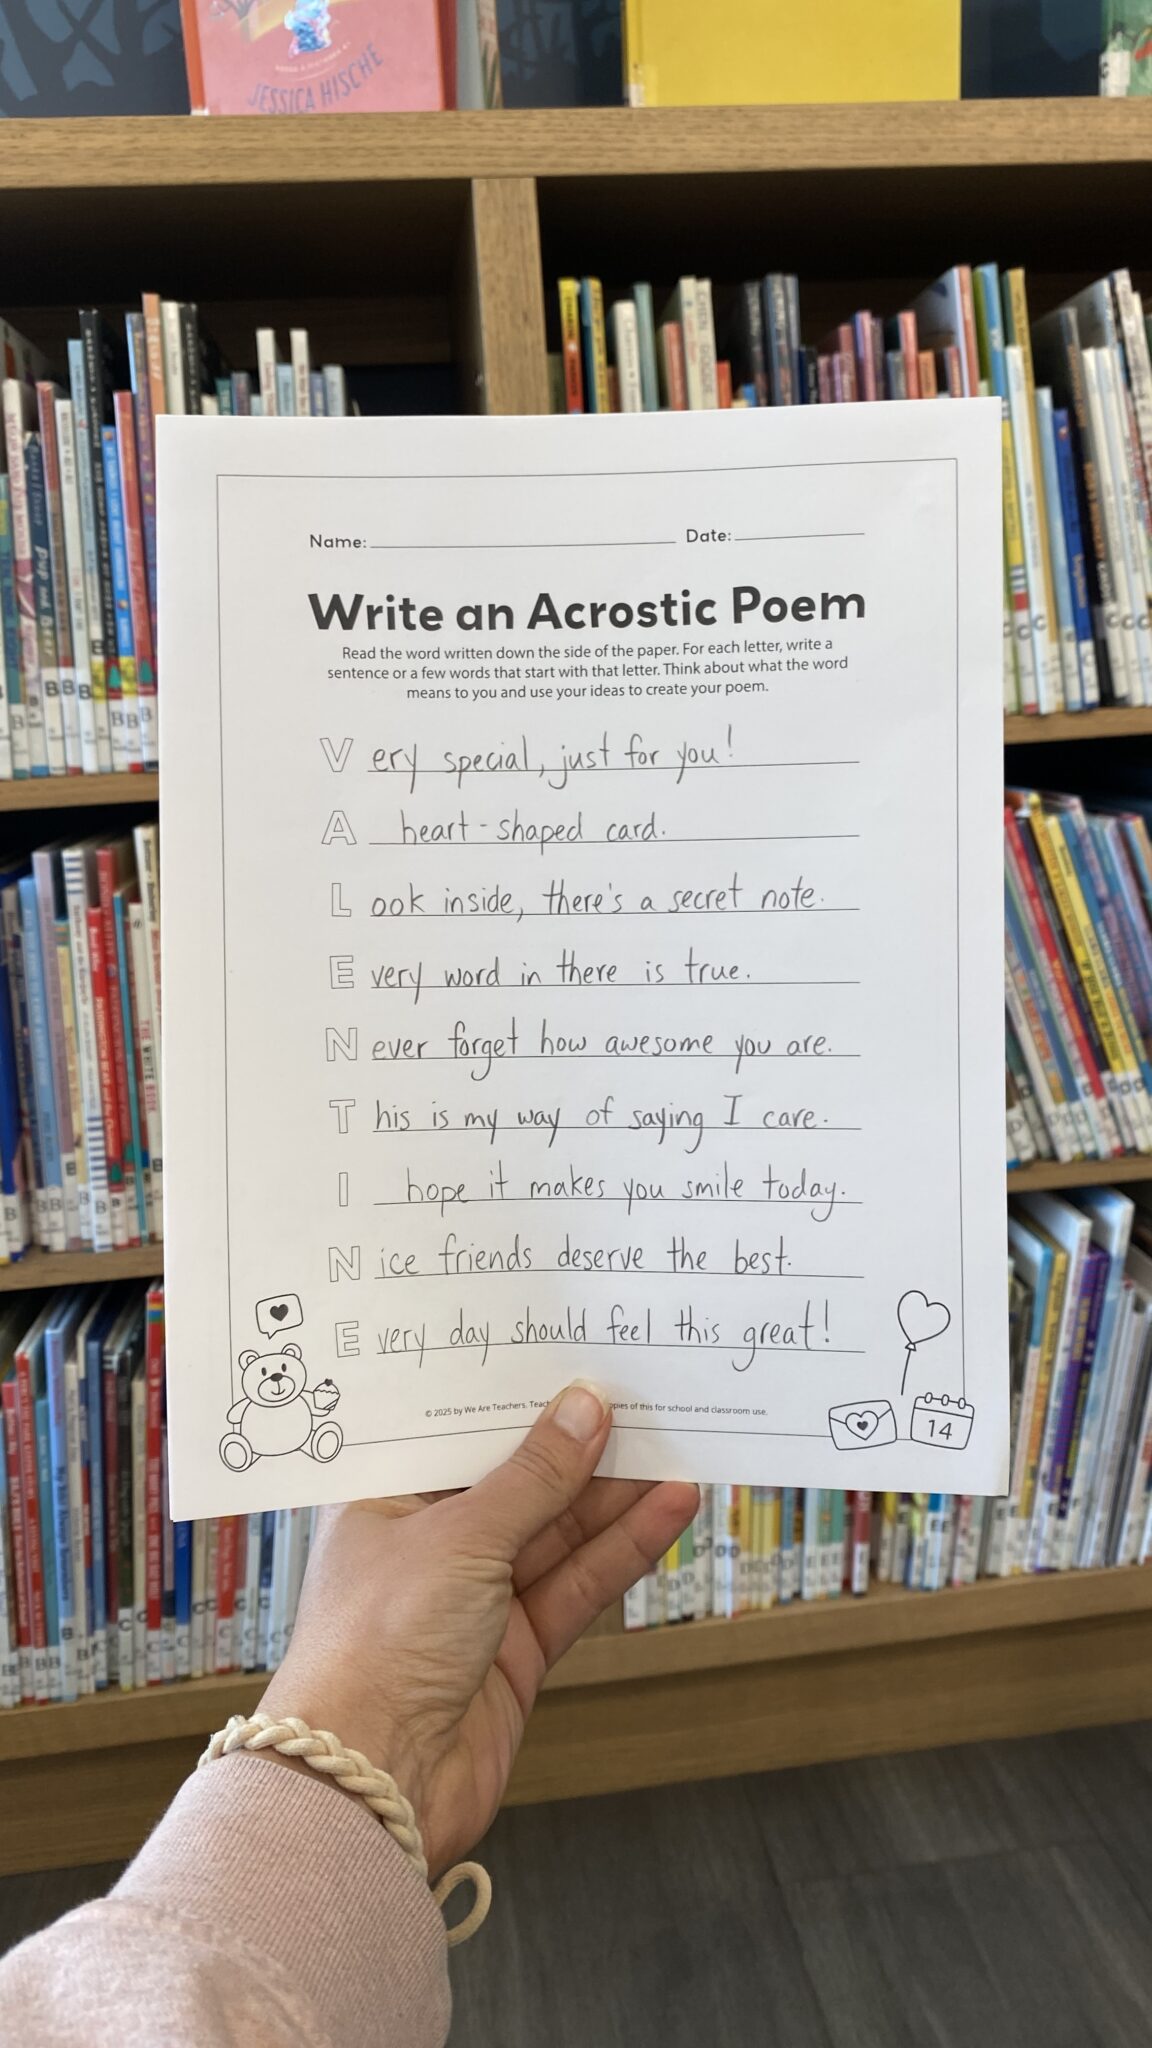 JESSICA HISCHE
Name: Date:
Write an Acrostic Poem
Read the word written down the side of the paper. For each letter, write a
sentence or a few words that start with that letter. Think about what the word
means to you and use your ideas to create your poem.
Very special, just for you!
A heart-shaped card.
Look inside, there's a secret note.
Every word in there is true.
Never forget how awesome you are.
This is my way of saying I care.
I hope it makes you smile today.
Nice friends deserve the best.
Every day should feel this great!
© 2025 by We Are Teachers. opies of this for school and classroom use.
14